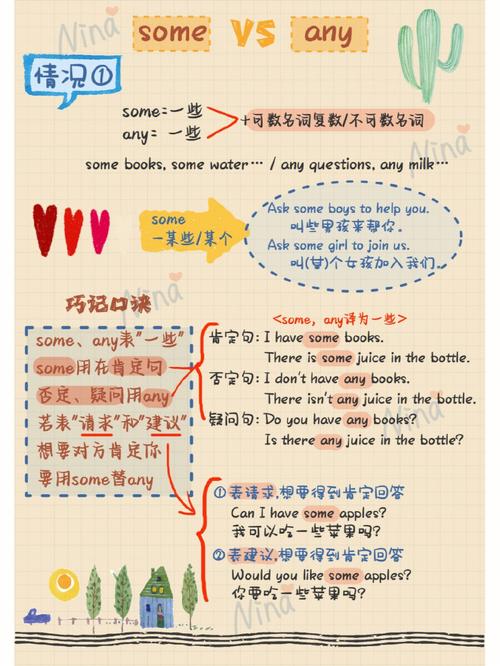 some VS any
情况①
some=一些
any= 一些
+可数名词复数/不可数名词
some books, some water… / any questions, any milk…
some
一某些/某个
Ask some boys to help you.
叫些男孩来帮你。
Ask some girl to join us.
叫(某)个女孩加入我们。
巧记口诀
some、any表"一些"
some用在肯定句
否定、疑问用any
若表"请求"和"建议"
想要对方肯定你
要用some替any
<some, any译为一些>
肯定句: I have some books.
There is some juice in the bottle.
否定句: I don't have any books.
There isn't any juice in the bottle.
疑问句: Do you have any books?
Is there any juice in the bottle?
①表请求,想要得到肯定回答
Can I have some apples?
我可以吃一些苹果吗?
②表建议,想要得到肯定回答
Would you like some apples?
你要吃一些苹果吗?
Nina
Nina
Nina
Nina
Nina